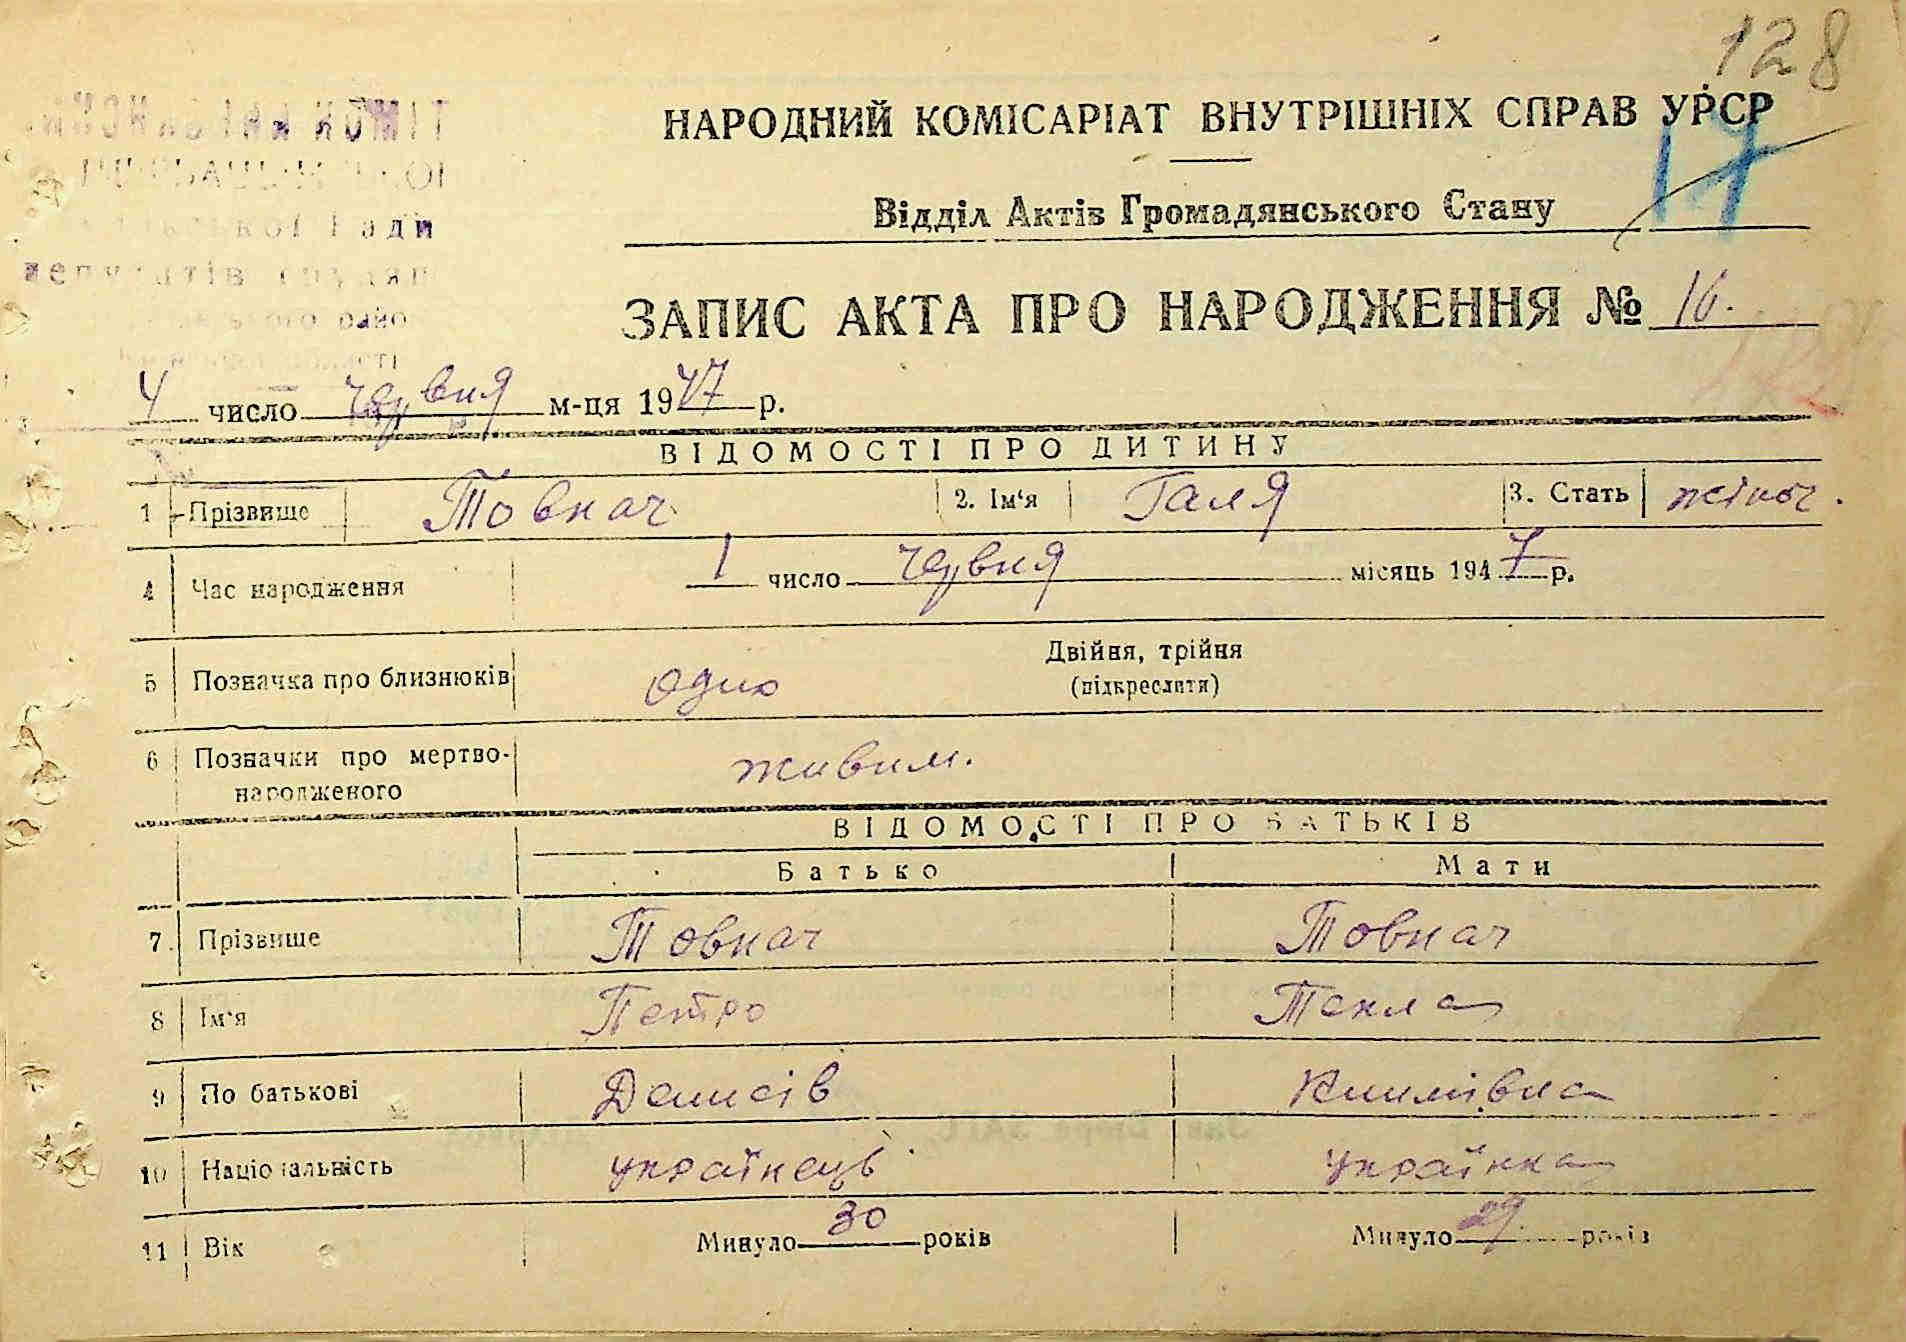 128
НАРОДНИЙ КОМІСАРІАТ ВНУТРІШНІХ СПРАВ УРСР
17
Відділ Актів Громадянського Стану
ЗАПИС АКТА ПРО НАРОДЖЕННЯ № 16.
4 число червня м-ця 1947 р.
ВІДОМОСТІ ПРО ДИТИНУ
1 Прізвище Товкач 2. Ім'я Галя 3. Стать жіноч.
4 Час народження 1 число червня місяць 1947 р.
Двійня, трійня
5 Позначка про близнюків одно (підкреслити)
6 Позначки про мертво-
народженого живим.
ВІДОМОСТІ ПРО БАТЬКІВ
Батько Мати
7. Прізвище Товкач Товкач
8 Ім'я Петро Текла
9 По батькові Денисів Климівна
10 Національність українець українка
11 Вік Минуло 30 років Минуло 29 років